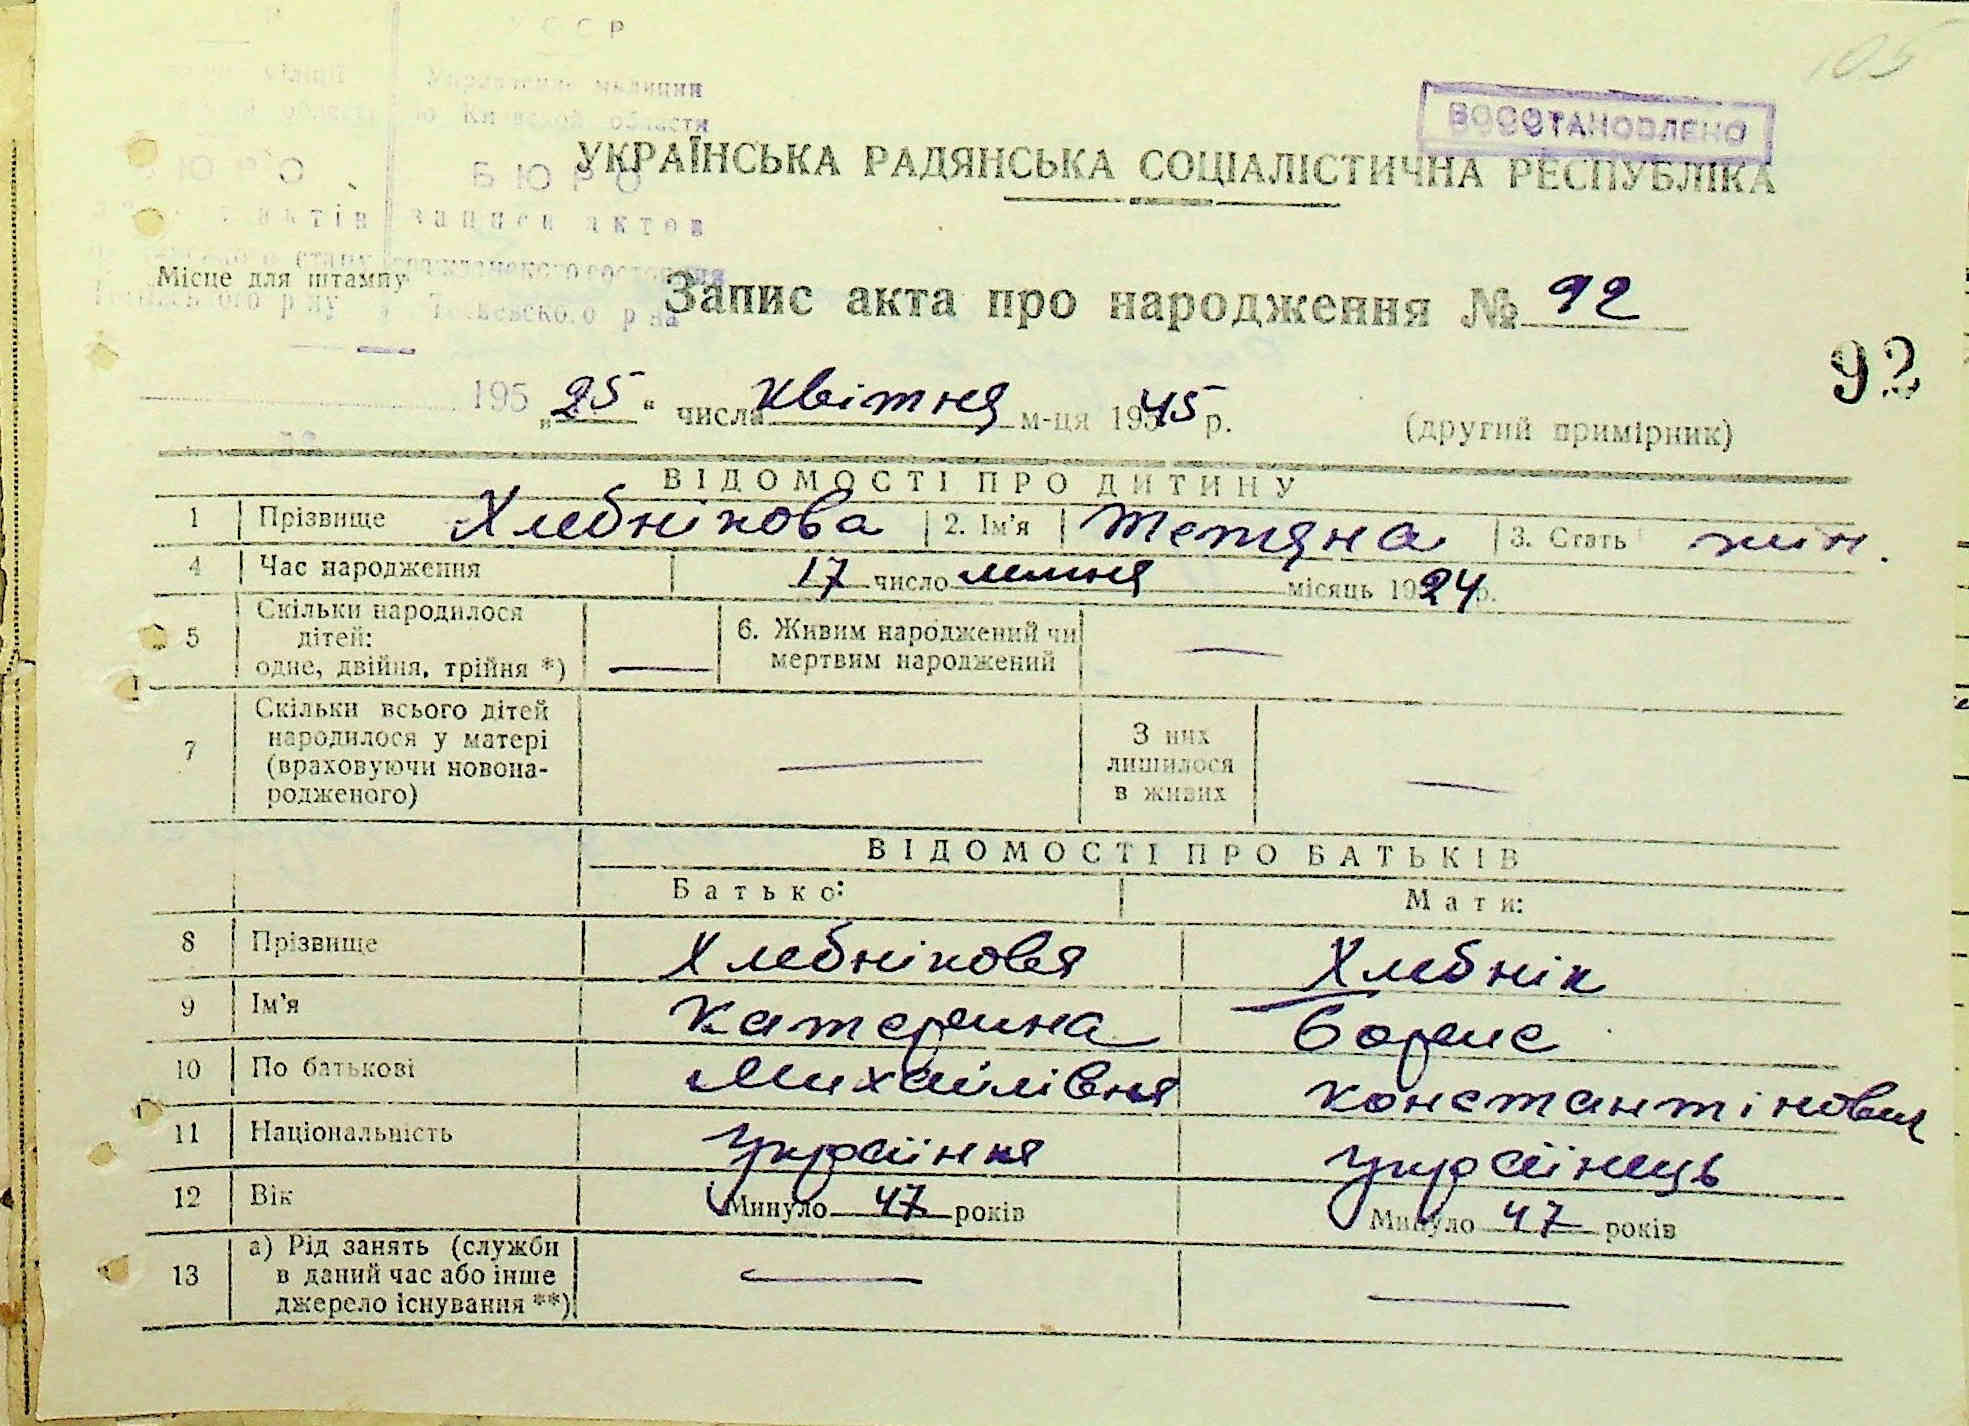 105
УССР
міліції Управление милиции
Киевской области
БЮРО БЮРО
актів записи актов
стану гражданского состояния
р-ну р-на
ВОССТАНОВЛЕНО
УКРАЇНСЬКА РАДЯНСЬКА СОЦІАЛІСТИЧНА РЕСПУБЛІКА
Місце для штампу
Запис акта про народження № 92
92
195 „25“ числа квітня м-ця 1945 р.
(другий примірник)
ВІДОМОСТІ ПРО ДИТИНУ
1 Прізвище Хлебнікова 2. Ім'я Тетяна 3. Стать жін.
4 Час народження 17 число липня місяць 1924 р.
5 Скільки народилося дітей: одне, двійня, трійня *) — 6. Живим народжений чи мертвим народжений —
7 Скільки всього дітей народилося у матері (враховуючи новонародженого) — З них лишилося в живих —
ВІДОМОСТІ ПРО БАТЬКІВ
Батько: Мати:
8 Прізвище Хлебнікова Хлебнік
9 Ім'я Катерина Борис
10 По батькові Михайлівна Константінович
11 Національність українка українець
12 Вік Минуло 47 років Минуло 47 років
13 а) Рід занять (служби в даний час або інше джерело існування **) — —